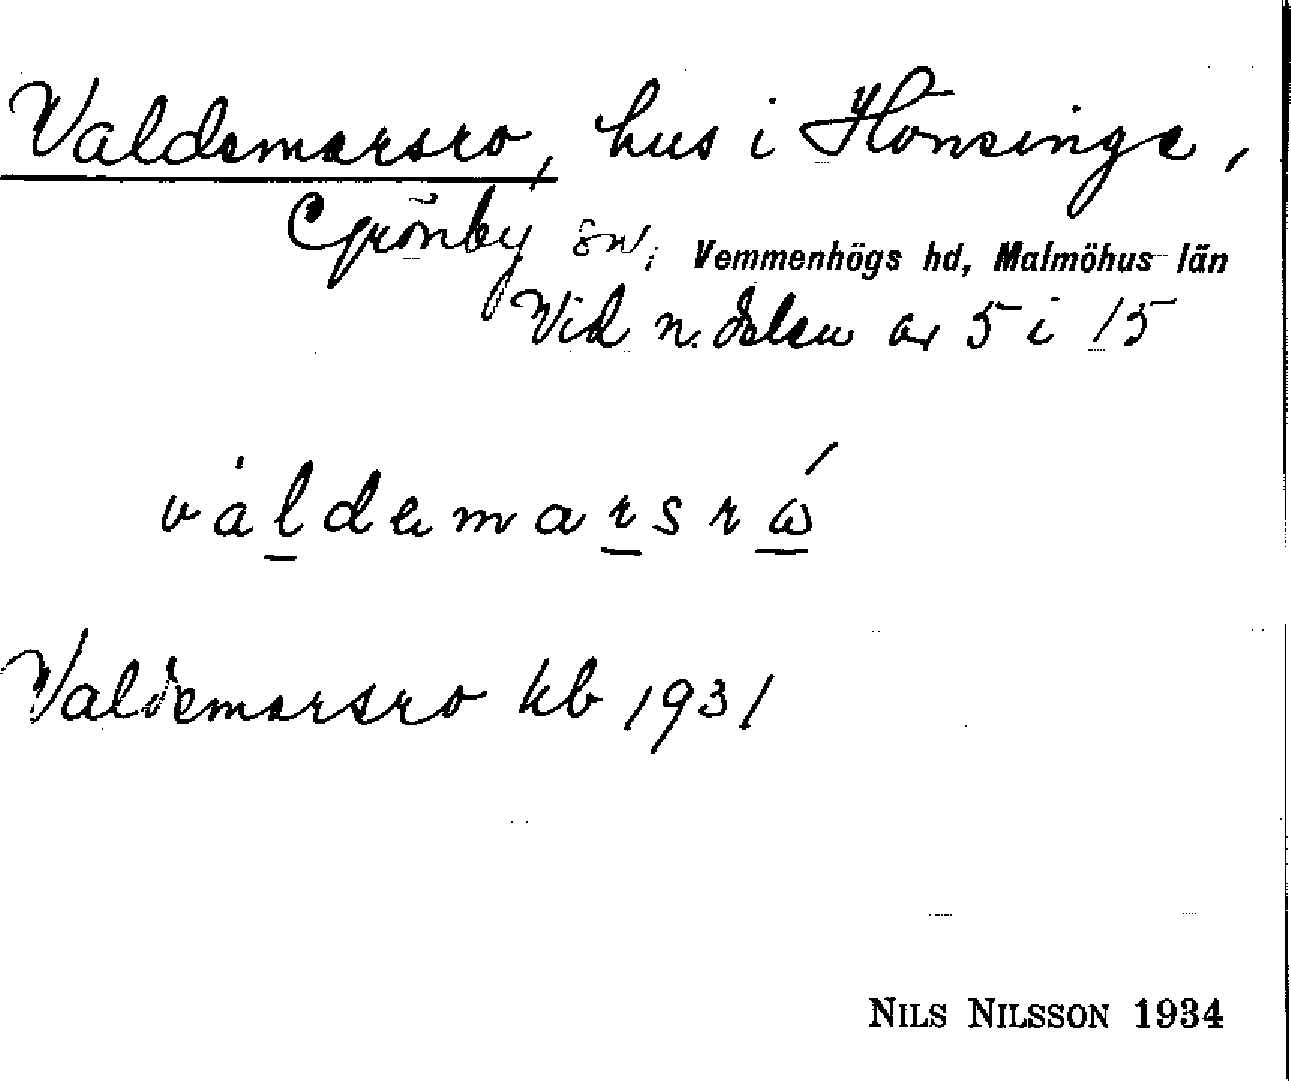 Valdemarsro, hus i Hönsinge,
Grönby sn, Vemmenhögs hd, Malmöhus län
Vid n. delen av 5 i 15
váldemarsró
Valdemarsro kb 1931
NILS NILSSON 1934